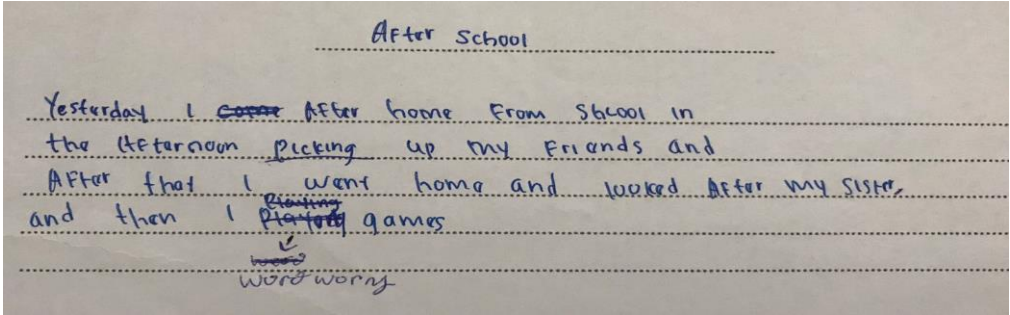 After school
Yesterday I After home From Sbcool in
the Afternoon picking up my Friends and
After that I went home and looked After my sister,
and then I playing games
word worny